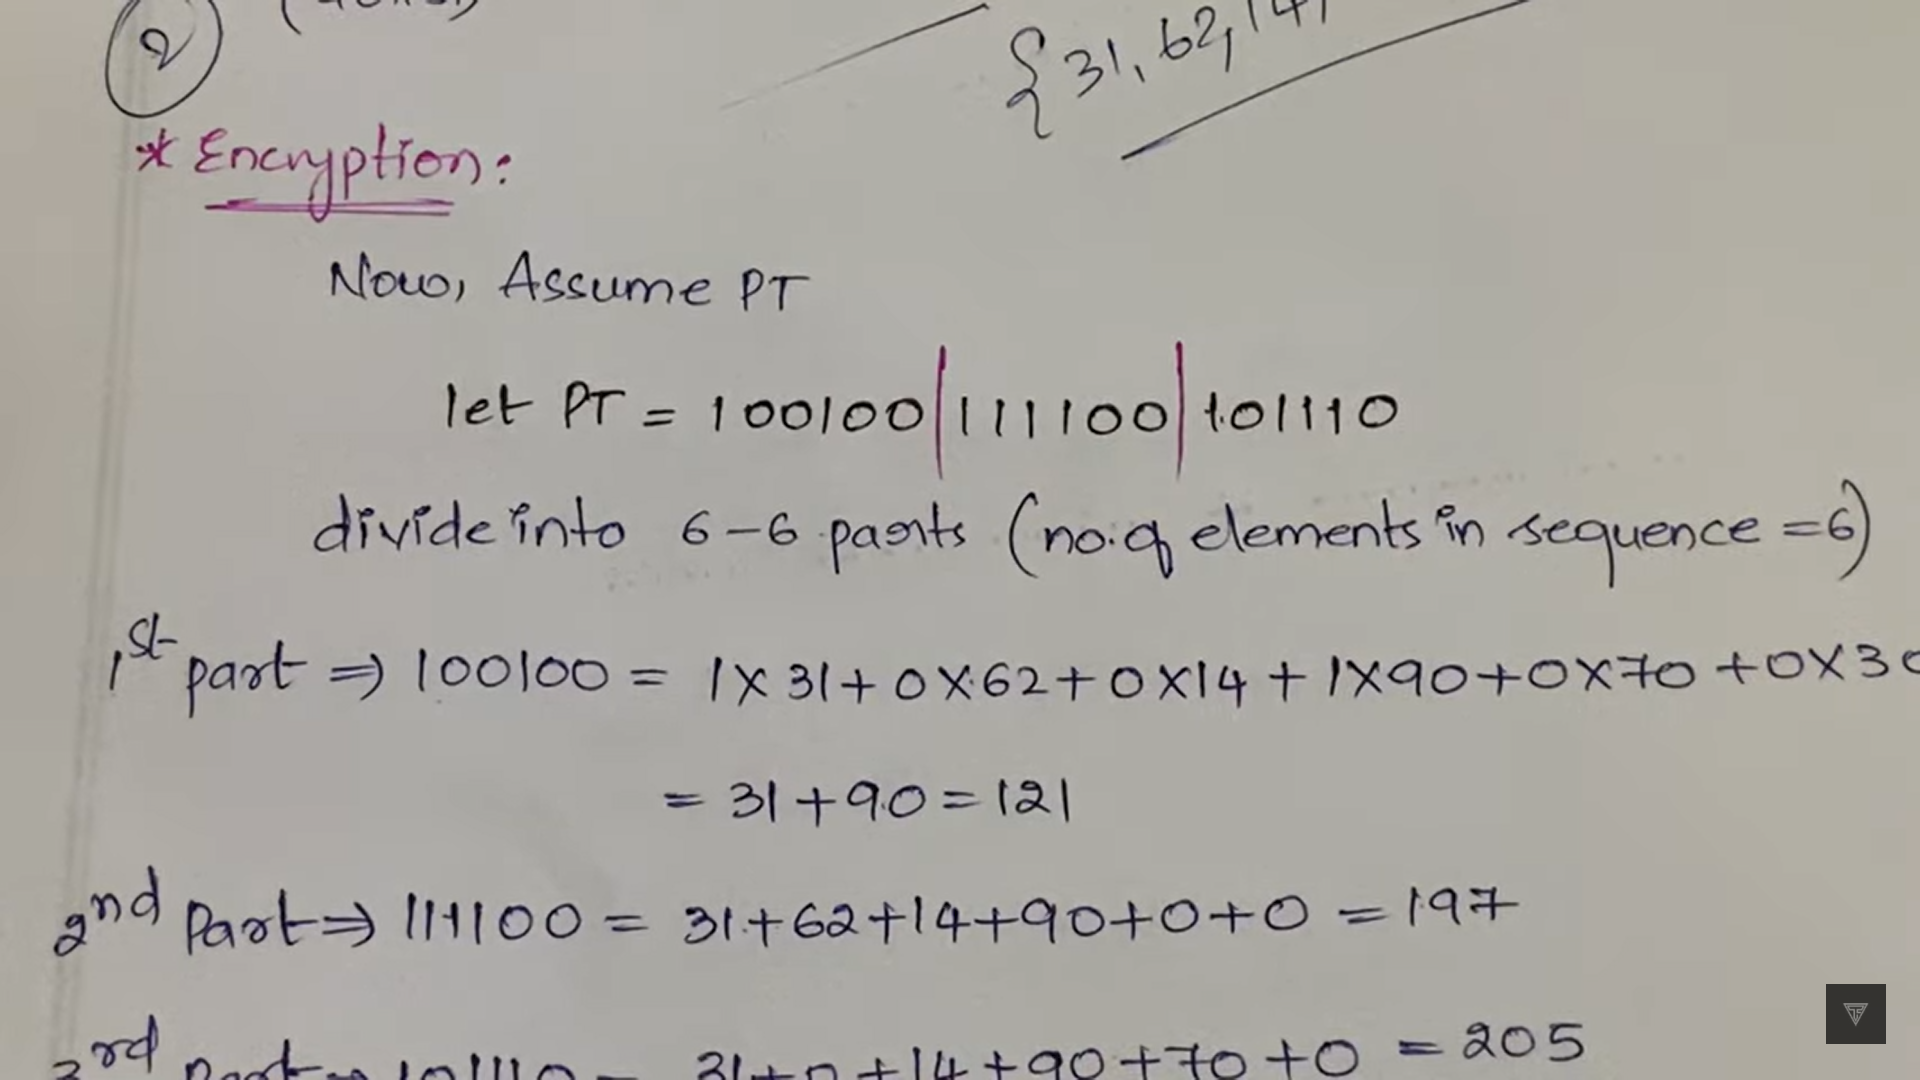 2
{31, 62, 14,
* Encryption:
Now, Assume PT
let PT = 100100|111100|101110
divide into 6-6 parts (no. of elements in sequence = 6)
1st part ⇒ 100100 = 1 X 31 + 0 X 62 + 0 X 14 + 1 X 90 + 0 X 70 + 0 X 30
= 31 + 90 = 121
2nd Part ⇒ 111100 = 31 + 62 + 14 + 90 + 0 + 0 = 197
3rd Part ⇒ 101110 = 31 + 0 + 14 + 90 + 70 + 0 = 205